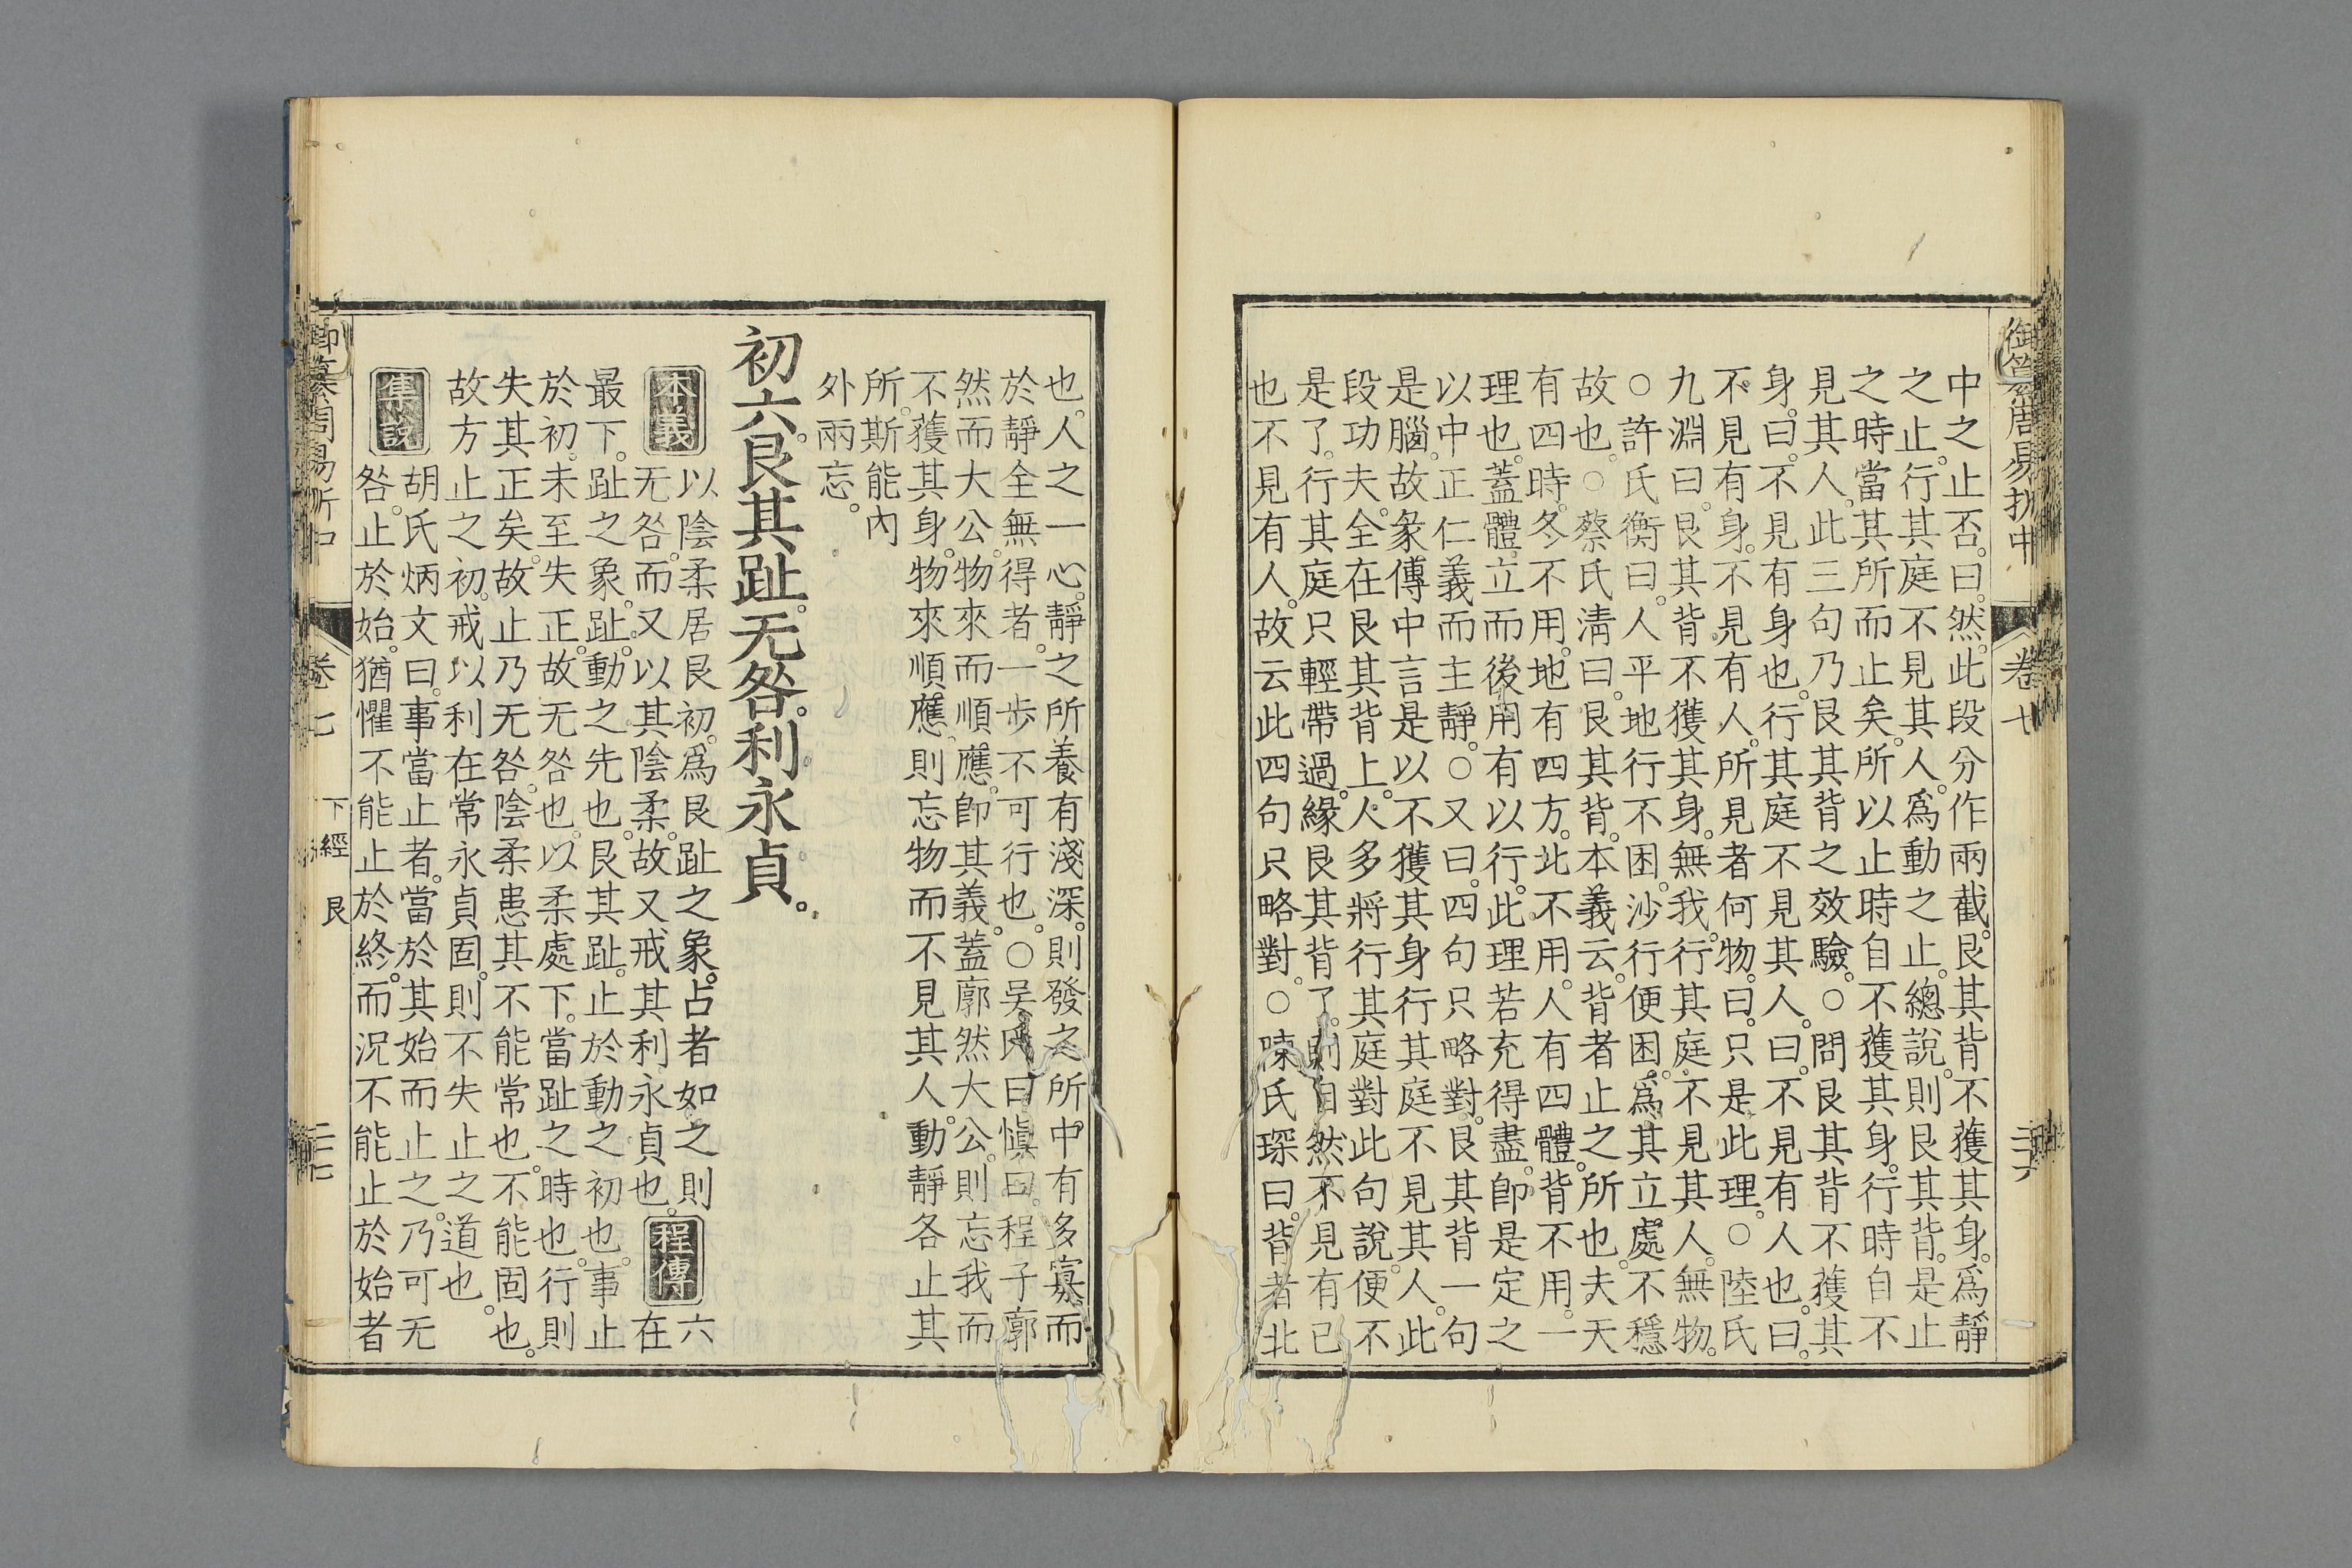 御纂周易折中
卷七
二十六
中之止否曰然此段分作兩截艮其背不獲其身爲靜
之止行其庭不見其人爲動之止總說則艮其背是止
之時當其所而止矣所以止時自不獲其身行時自不
見其人此三句乃艮其背之效驗○問艮其背不獲其
身曰不見有身也行其庭不見其人曰不見有人也曰
不見有身不見有人所見者何物曰只是此理○陸氏
九淵曰艮其背不獲其身無我行其庭不見其人無物
○許氏衡曰人平地行不困沙行便困爲其立處不穩
故也○蔡氏淸曰艮其背本義云背者止之所也夫天
有四時冬不用地有四方北不用人有四體背不用一
理也蓋體立而後用有以行此理若充得盡卽是定之
以中正仁義而主靜○又曰四句只略對艮其背一句
是腦故彖傳中言是以不獲其身行其庭不見其人此
段功夫全在艮其背上人多將行其庭對此句說便不
是了行其庭只輕帶過緣艮其背了則自然不見有已
也不見有人故云此四句只略對○陳氏琛曰背者北
也人之一心靜之所養有淺深則發之所中有多寡而
於靜全無得者一步不可行也○吴氏曰愼曰程子廓
然而大公物來而順應卽其義蓋廓然大公則忘我而
不獲其身物來順應則忘物而不見其人動靜各止其
所斯能內
外兩忘
初六艮其趾无咎利永貞
本義
以陰柔居艮初爲艮趾之象占者如之則
无咎而又以其陰柔故又戒其利永貞也
程傳
六
在
最下趾之象趾動之先也艮其趾止於動之初也事止
於初未至失正故无咎也以柔處下當趾之時也行則
失其正矣故止乃无咎陰柔患其不能常也不能固也
故方止之初戒以利在常永貞固則不失止之道也
集說
胡氏炳文曰事當止者當於其始而止之乃可无
咎止於始猶懼不能止於終而況不能止於始者
御纂周易折中
卷七
下經 艮
二十七